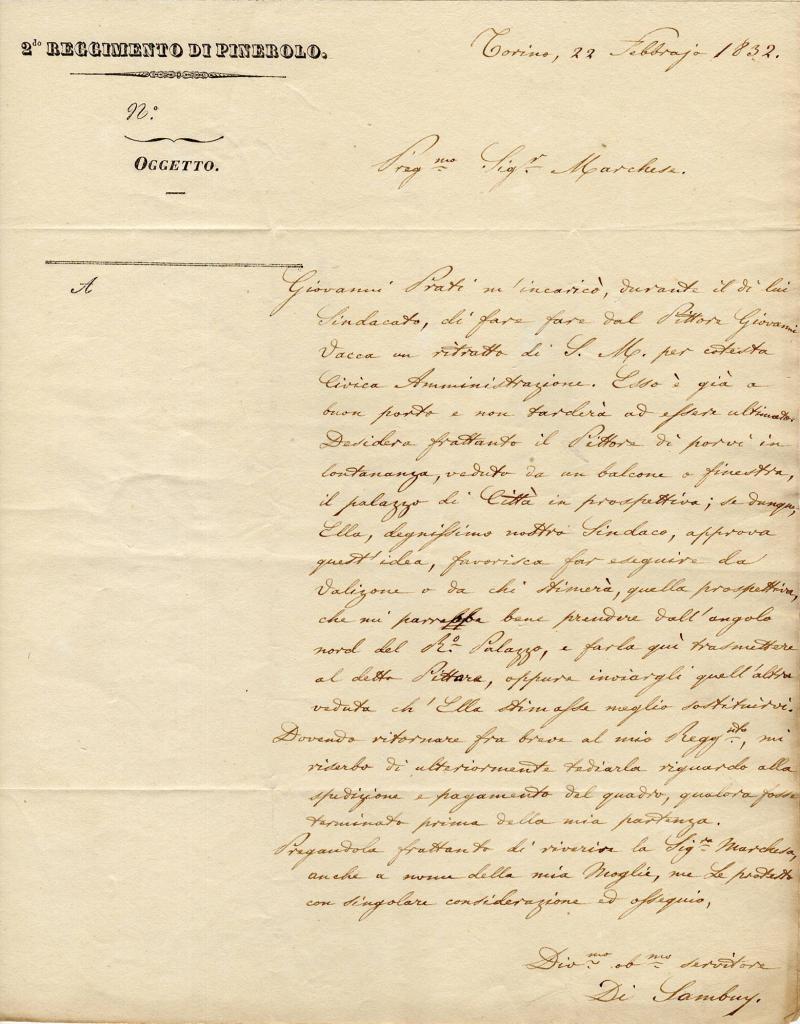 2do REGGIMENTO DI PINEROLO.
Torino, 22 Febbrajo 1832.
N.o
OGGETTO.
Pregmo Sigr Marchese.
A
Giovanni Prati m'incaricò, durante il di lui
Sindacato, di fare fare dal Pittore Giovanni
Vacca un ritratto di S. M. per cotesta
Civica Amministrazione. Esso è già a
buon porto e non tarderà ad essere ultimato.
Desidera frattanto il Pittore di porvi in
lontananza, veduto da un balcone o finestra,
il palazzo di Città in prospettiva; se dunque,
Ella, degnissimo nostro Sindaco, approva
quest'idea, favorisca far eseguire da
Valizone o da chi stimerà, quella prospettiva,
che mi parrebbe bene prendere dall'angolo
nord del R.o Palazzo, e farla quì trasmettere
al detto Pittore, oppure inviargli quell'altra
veduta ch'Ella stimasse meglio sostituirvi.
Dovendo ritornare fra breve al mio Reggnto, mi
riserbo di ulteriormente tediarla riguardo alla
spedizione e pagamento del quadro, qualora fosse
terminato prima della mia partenza.
Pregandola frattanto di riverire la Sigra Marchesa,
anche a nome della mia Moglie, me Le protesto
con singolare considerazione ed ossequio,
Divmo obmo servitore
Di Sambuy.